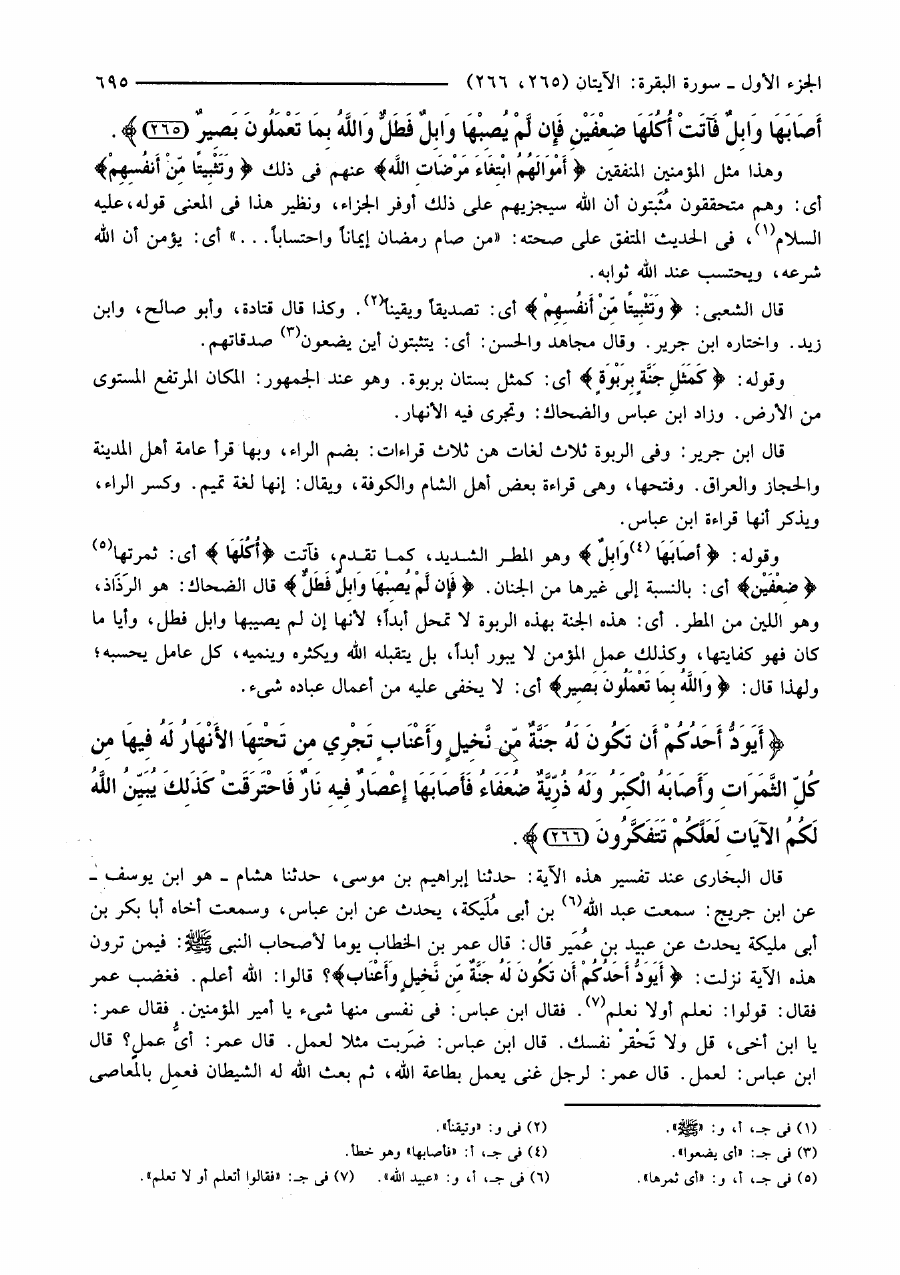 الجزء الأول ـ سورة البقرة: الآيتان (٢٦٥، ٢٦٦) ٦٩٥
أَصَابَهَا وَابِلٌ فَآتَتْ أُكُلَهَا ضِعْفَيْنِ فَإِن لَّمْ يُصِبْهَا وَابِلٌ فَطَلٌّ وَاللَّهُ بِمَا تَعْمَلُونَ بَصِيرٌ (٢٦٥) ﴾ .
وهذا مثل المؤمنين المنفقين ﴿ أَمْوَالَهُمُ ابْتِغَاءَ مَرْضَاتِ اللَّه﴾ عنهم فى ذلك ﴿ وَتَثْبِيتًا مِّنْ أَنفُسِهِمْ﴾
أى: وهم متحققون مُثَبتون أن الله سيجزيهم على ذلك أوفر الجزاء، ونظير هذا فى المعنى قوله، عليه
السلام(١)، فى الحديث المتفق على صحته: «من صام رمضان إيماناً واحتساباً. . .» أى: يؤمن أن الله
شرعه، ويحتسب عند الله ثوابه.
قال الشعبى: ﴿ وَتَثْبِيتًا مِّنْ أَنفُسِهِمْ ﴾ أى: تصديقاً ويقيناً(٢). وكذا قال قتادة، وأبو صالح، وابن
زيد. واختاره ابن جرير. وقال مجاهد والحسن: أى: يتثبتون أين يضعون(٣) صدقاتهم.
وقوله: ﴿ كَمَثَلِ جَنَّةٍ بِرَبْوَةٍ ﴾ أى: كمثل بستان بربوة. وهو عند الجمهور: المكان المرتفع المستوى
من الأرض. وزاد ابن عباس والضحاك: وتجرى فيه الأنهار.
قال ابن جرير: وفى الربوة ثلاث لغات هن ثلاث قراءات: بضم الراء، وبها قرأ عامة أهل المدينة
والحجاز والعراق. وفتحها، وهى قراءة بعض أهل الشام والكوفة، ويقال: إنها لغة تميم. وكسر الراء،
ويذكر أنها قراءة ابن عباس.
وقوله: ﴿ أَصَابَهَا (٤)وَابِلٌ ﴾ وهو المطر الشديد، كما تقدم، فآتت ﴿أُكُلَهَا ﴾ أى: ثمرتها(٥)
﴿ ضِعْفَيْنِ﴾ أى: بالنسبة إلى غيرها من الجنان. ﴿ فَإِن لَّمْ يُصِبْهَا وَابِلٌ فَطَلٌّ ﴾ قال الضحاك: هو الرَذَاذ،
وهو اللين من المطر. أى: هذه الجنة بهذه الربوة لا تمحل أبداً؛ لأنها إن لم يصيبها وابل فطل، وأيا ما
كان فهو كفايتها، وكذلك عمل المؤمن لا يبور أبداً، بل يتقبله الله ويكثره وينميه، كل عامل بحسبه؛
ولهذا قال: ﴿ وَاللَّهُ بِمَا تَعْمَلُونَ بَصِير﴾ أى: لا يخفى عليه من أعمال عباده شىء.
﴿ أَيَوَدُّ أَحَدُكُمْ أَن تَكُونَ لَهُ جَنَّةٌ مِّن نَّخِيلٍ وَأَعْنَابٍ تَجْرِي مِن تَحْتِهَا الأَنْهَارُ لَهُ فِيهَا مِن
كُلِّ الثَّمَرَاتِ وَأَصَابَهُ الْكِبَرُ وَلَهُ ذُرِّيَّةٌ ضُعَفَاءُ فَأَصَابَهَا إِعْصَارٌ فِيهِ نَارٌ فَاحْتَرَقَتْ كَذَلِكَ يُبَيِّنُ اللَّهُ
لَكُمُ الآيَاتِ لَعَلَّكُمْ تَتَفَكَّرُونَ (٢٦٦) ﴾ .
قال البخارى عند تفسير هذه الآية: حدثنا إبراهيم بن موسى، حدثنا هشام ـ هو ابن يوسف ـ
عن ابن جريج: سمعت عبد الله(٦) بن أبى مُلَيكة، يحدث عن ابن عباس، وسمعت أخاه أبا بكر بن
أبى مليكة يحدث عن عبيد بن عُمَير قال: قال عمر بن الخطاب يوما لأصحاب النبى ﷺ: فيمن ترون
هذه الآية نزلت: ﴿ أَيَوَدُّ أَحَدُكُمْ أَن تَكُونَ لَهُ جَنَّةٌ مِّن نَّخِيلٍ وَأَعْنَاب﴾؟ قالوا: الله أعلم. فغضب عمر
فقال: قولوا: نعلم أولا نعلم(٧). فقال ابن عباس: فى نفسى منها شىء يا أمير المؤمنين. فقال عمر:
يا ابن أخى، قل ولا تَحْقِرْ نفسك. قال ابن عباس: ضَربت مثلا لعمل. قال عمر: أىُّ عمل؟ قال
ابن عباس: لعمل. قال عمر: لرجل غنى يعمل بطاعة الله، ثم بعث الله له الشيطان فعمل بالمعاصى
(١) فى جـ، أ، و: «ﷺ». (٢) فى و: «وتيقناً».
(٣) فى جـ: «أى يضعوا». (٤) فى جـ، أ: «فأصابها» وهو خطأ.
(٥) فى جـ، أ، و: «أى ثمرها». (٦) فى جـ، أ، و: «عبيد الله». (٧) فى جـ: «فقالوا أتعلم أو لا تعلم».